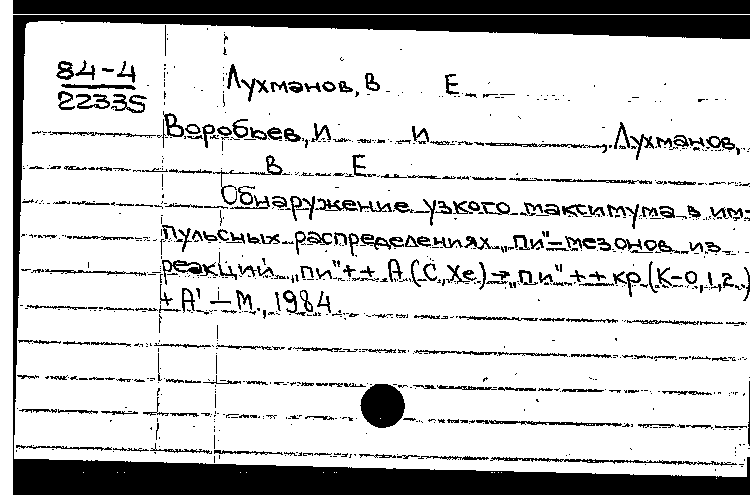 84-4
22335
Лухманов, В Е
Воробьев, И И , Лухманов,
В Е
Обнаружение узкого максимума в им-
пульсных распределениях „пи"-мезонов из
реакции „пи"++A(C,Xe)→„пи"++кр(К-0,1,2)
+A' - М., 1984.